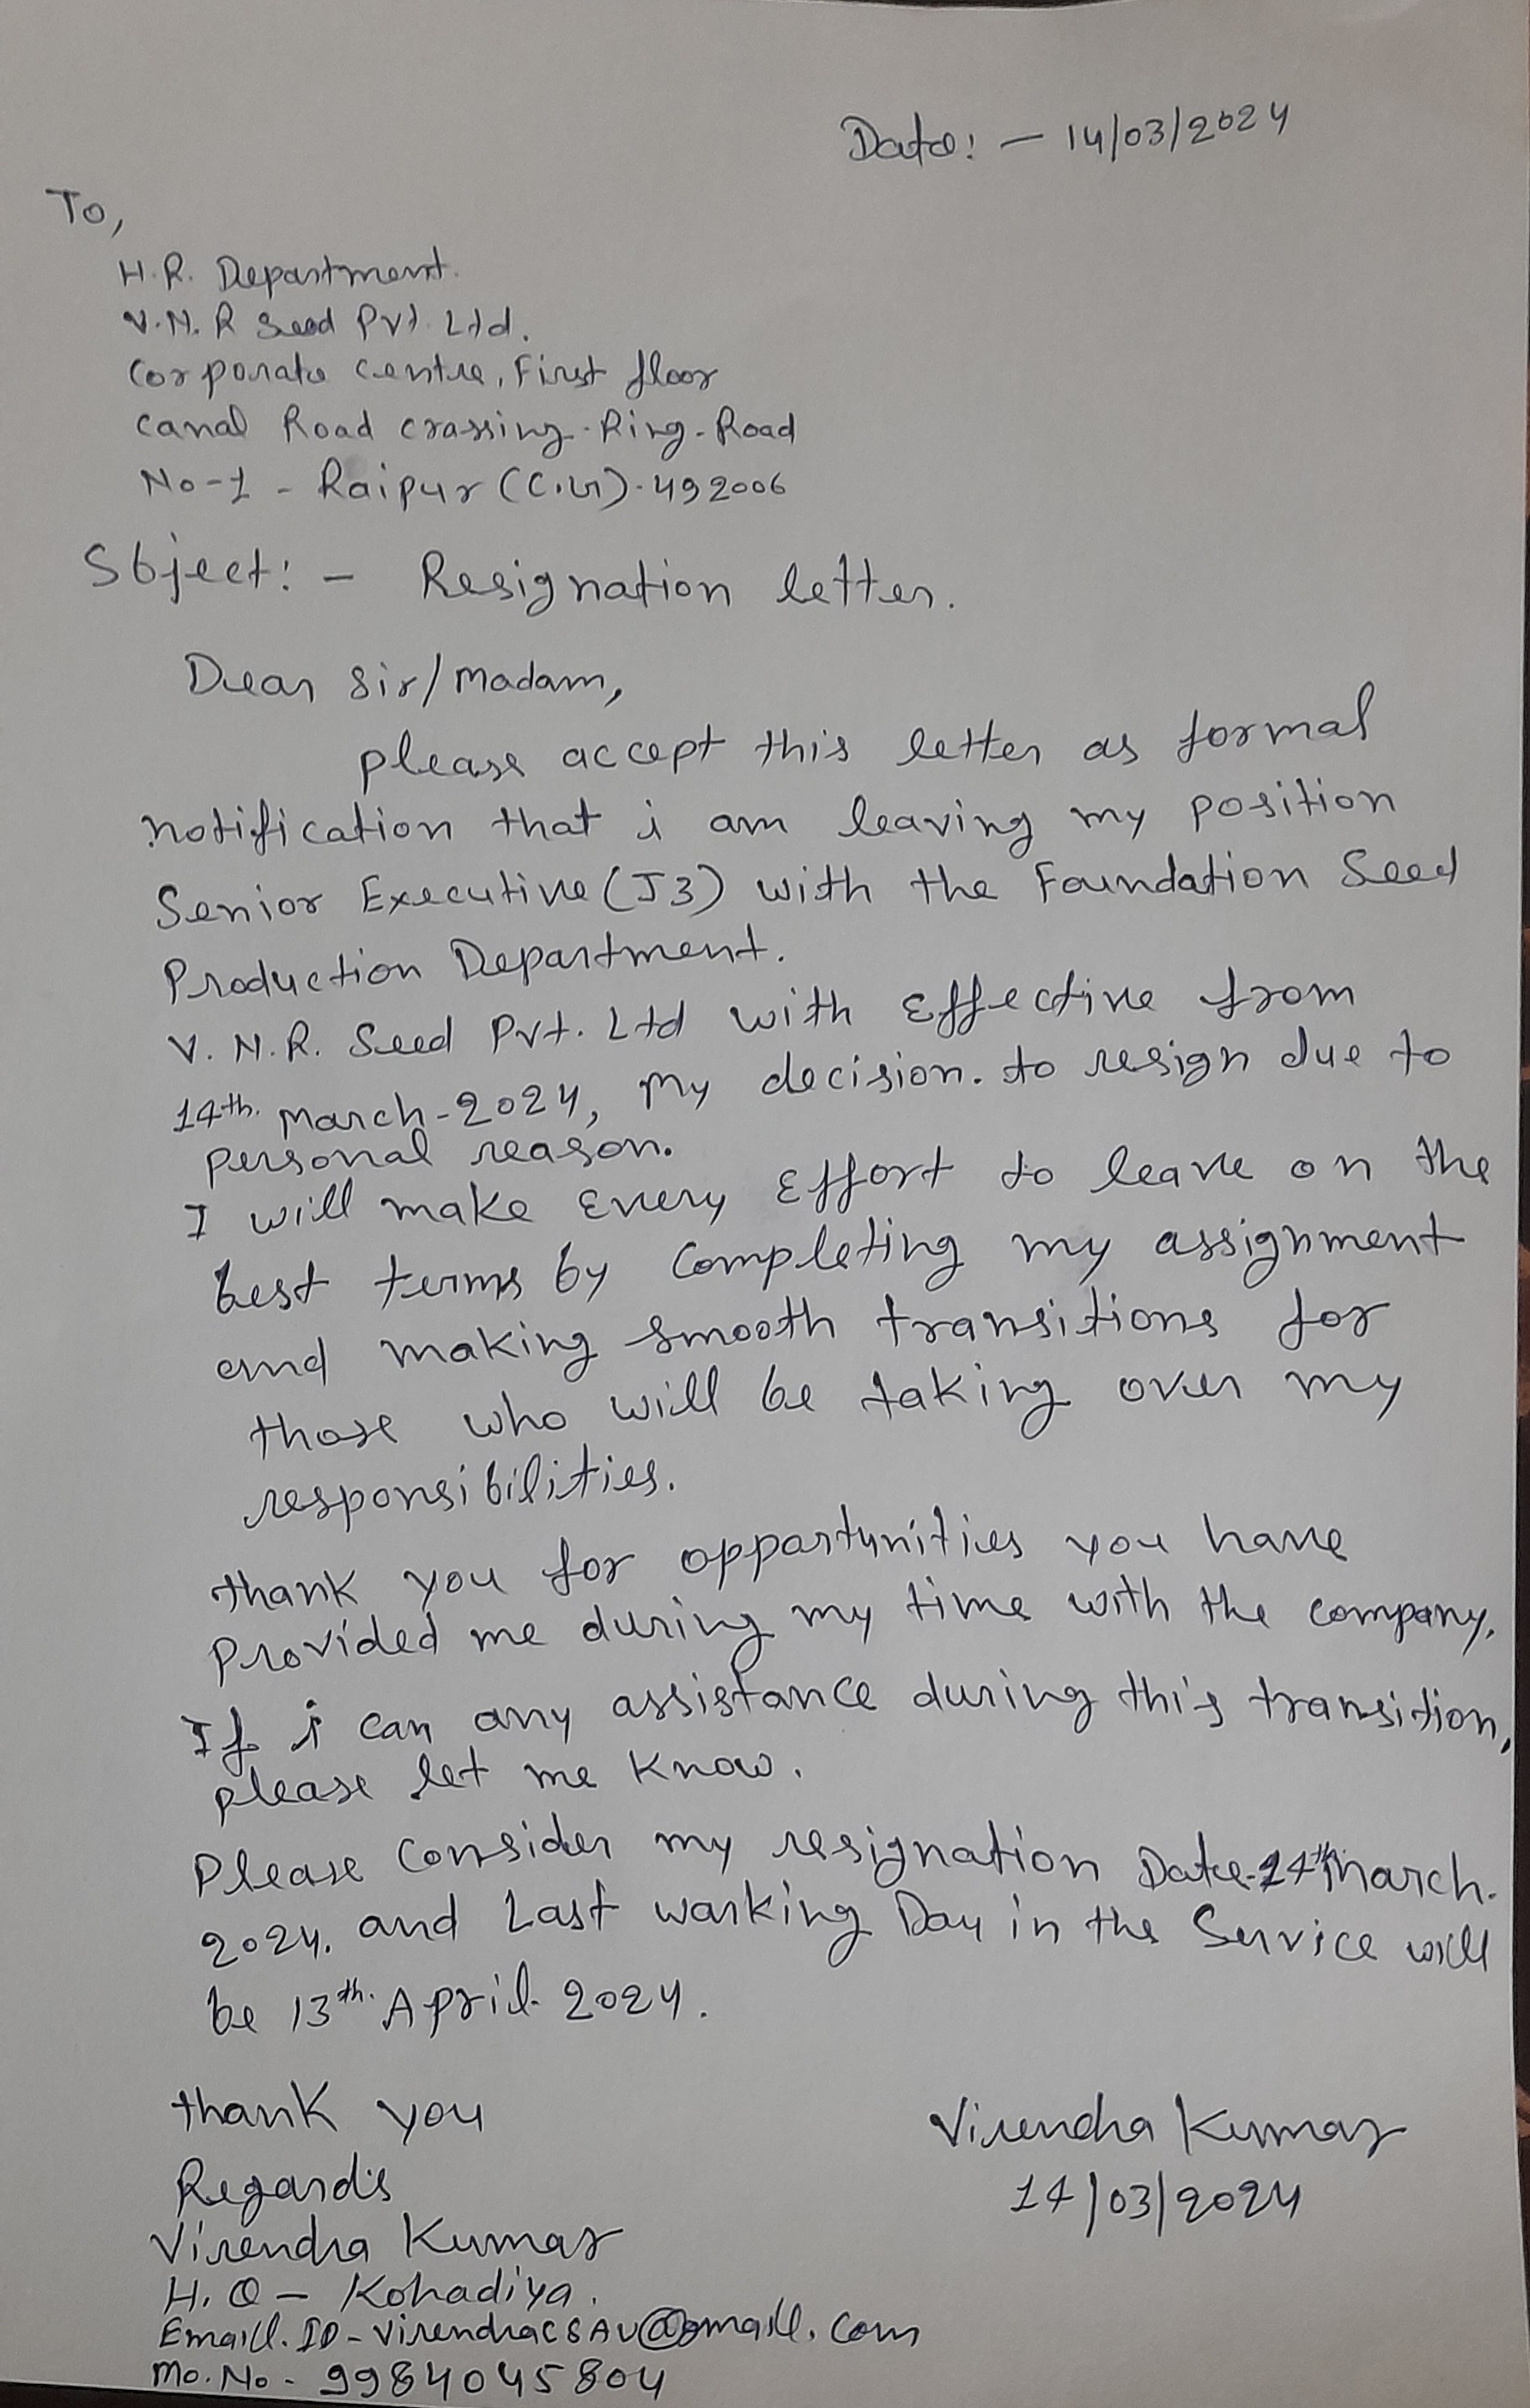 Date: - 14/03/2024
To,
H.R. Department.
V.N.R Seed Pvt. Ltd.
Corporate Centre, First floor
Canal Road crassing - Ring - Road
No-1 - Raipur (C.G) - 492006
Sbject: - Resignation letter.
Dear Sir/Madam,
please accept this letter as formal
notification that i am leaving my position
Senior Executive (J3) with the Foundation Seed
Production Department.
V. N. R. Seed Pvt. Ltd with Effective from
14th. March-2024, My decision. to resign due to
personal reason.
I will make Every Effort to leave on the
best terms by Completing my assignment
and making smooth transitions for
those who will be taking over my
responsibilities.
thank you for opportunities you have
Provided me during my time with the company.
If i can any assistance during this transition,
please let me know.
Please Consider my resignation Date-14th March.
2024. and Last working Day in the Service will
be 13th. April- 2024.
thank you
Virendra Kumar
14/03/2024
Regards
Virendra Kumar
H.Q - Kohadiya.
Emaill. ID - VirendracSAU@gmaill.com
Mo. No - 9984045804